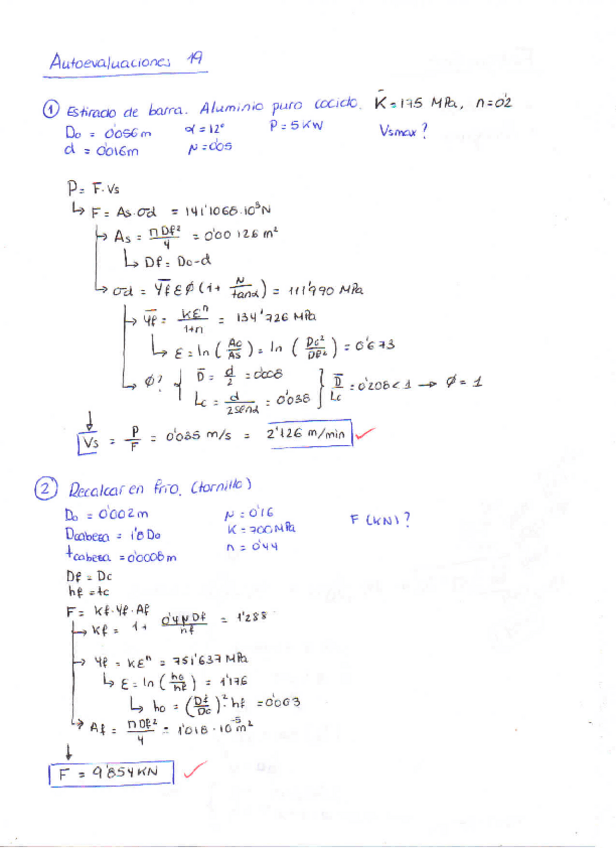 Autoevaluaciones 19
① Estirado de barra. Aluminio puro cocido. K̄=175 MPa, n=0'2
Do = 0'056m α=12° P=5KW Vsmax?
d = 0'016m μ=0'05
P= F·Vs
↳ F = As·σd = 141'1068·10³N
↳ As = πDf²/4 = 0'00126 m²
↳ Df = Do-d
↳ σd = Ȳf ε Ø (1+ μ/tanα) = 111'990 MPa
↳ Ȳf = Kεⁿ/1+n = 134'726 MPa
↳ ε = ln (Ao/As) = ln (Do²/Df²) = 0'673
↳ Ø? { D̄ = d/2 = 0'008 Lc = d/2senα = 0'038 } D̄/Lc = 0'208<1 → Ø = 1
↓
Vs = P/F = 0'035 m/s = 2'126 m/min ✓
② Recalcar en frío. (tornillo)
Do = 0'002m μ = 0'16 F (KN)?
Dcabeza = 1'8 Do K = 700MPa
tcabeza = 0'0008m n = 0'44
Df = Dc
hf = tc
F = Kf·Yf·Af
↳ Kf = 1+ 0'4μDf/hf = 1'288
↳ Yf = Kεⁿ = 751'637 MPa
↳ ε = ln (ho/hf) = 1'176
↳ ho = (Df/Dc)²·hf = 0'003
↳ Af = πDf²/4 = 1'018·10⁻⁵m²
↓
F = 9'854KN ✓